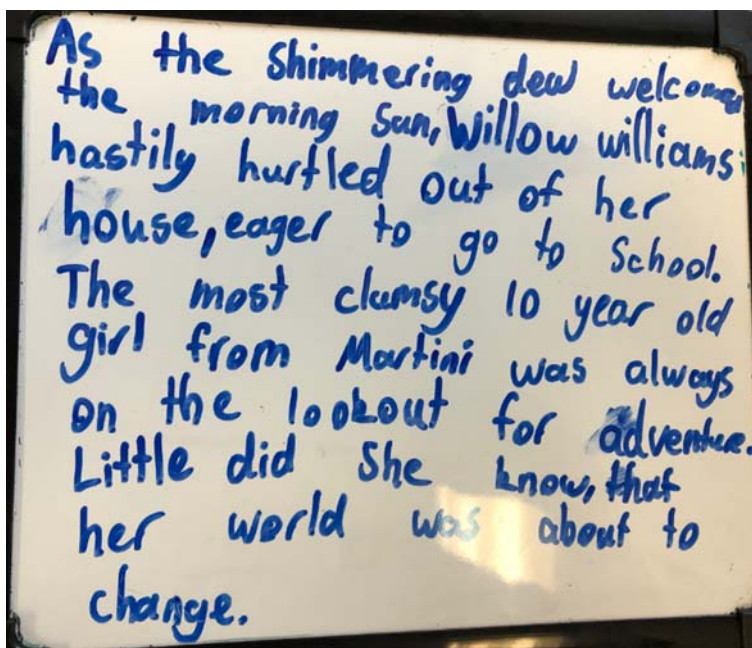 As the shimmering dew welcomes
the morning Sun, Willow williams
hastily hurtled out of her
house, eager to go to School.
The most clumsy 10 year old
girl from Martini was always
on the lookout for adventure.
Little did She know, that
her world was about to
change.